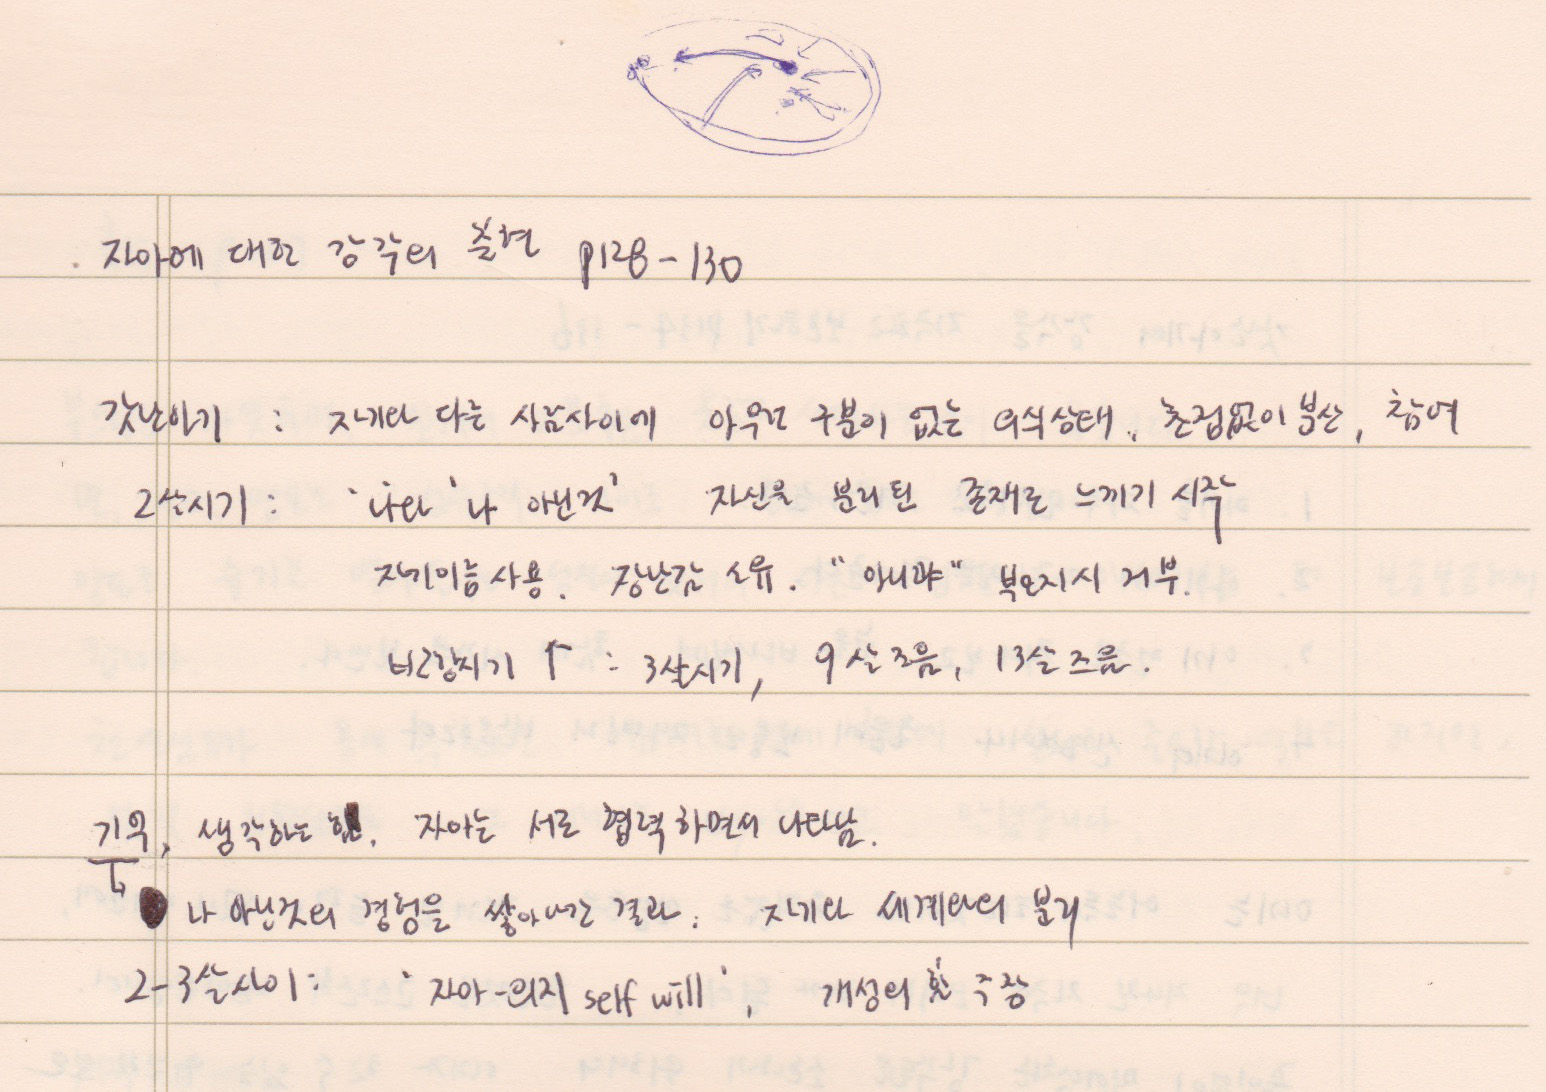 자아에 대한 감각의 출현 p128-130
갓난아기 : 자기와 다른 사람사이에 아무런 구분이 없는 의식상태, 초점없이 분산, 참여
2살시기 : '나'와 '나 아닌것' 자신을 분리된 존재로 느끼기 시작
자기이름사용. 장난감 소유. "아니야" 부모지시 거부.
비판감지기 ↑ : 3살시기, 9살즈음, 13살즈음.
기억, 생각하는 힘, 자아는 서로 협력하면서 나타남.
나 아닌것의 경험을 쌓아가는 결과. 자기와 세계와의 분리
2-3살사이 : '자아-의지 self will', 개성의 첫 주장